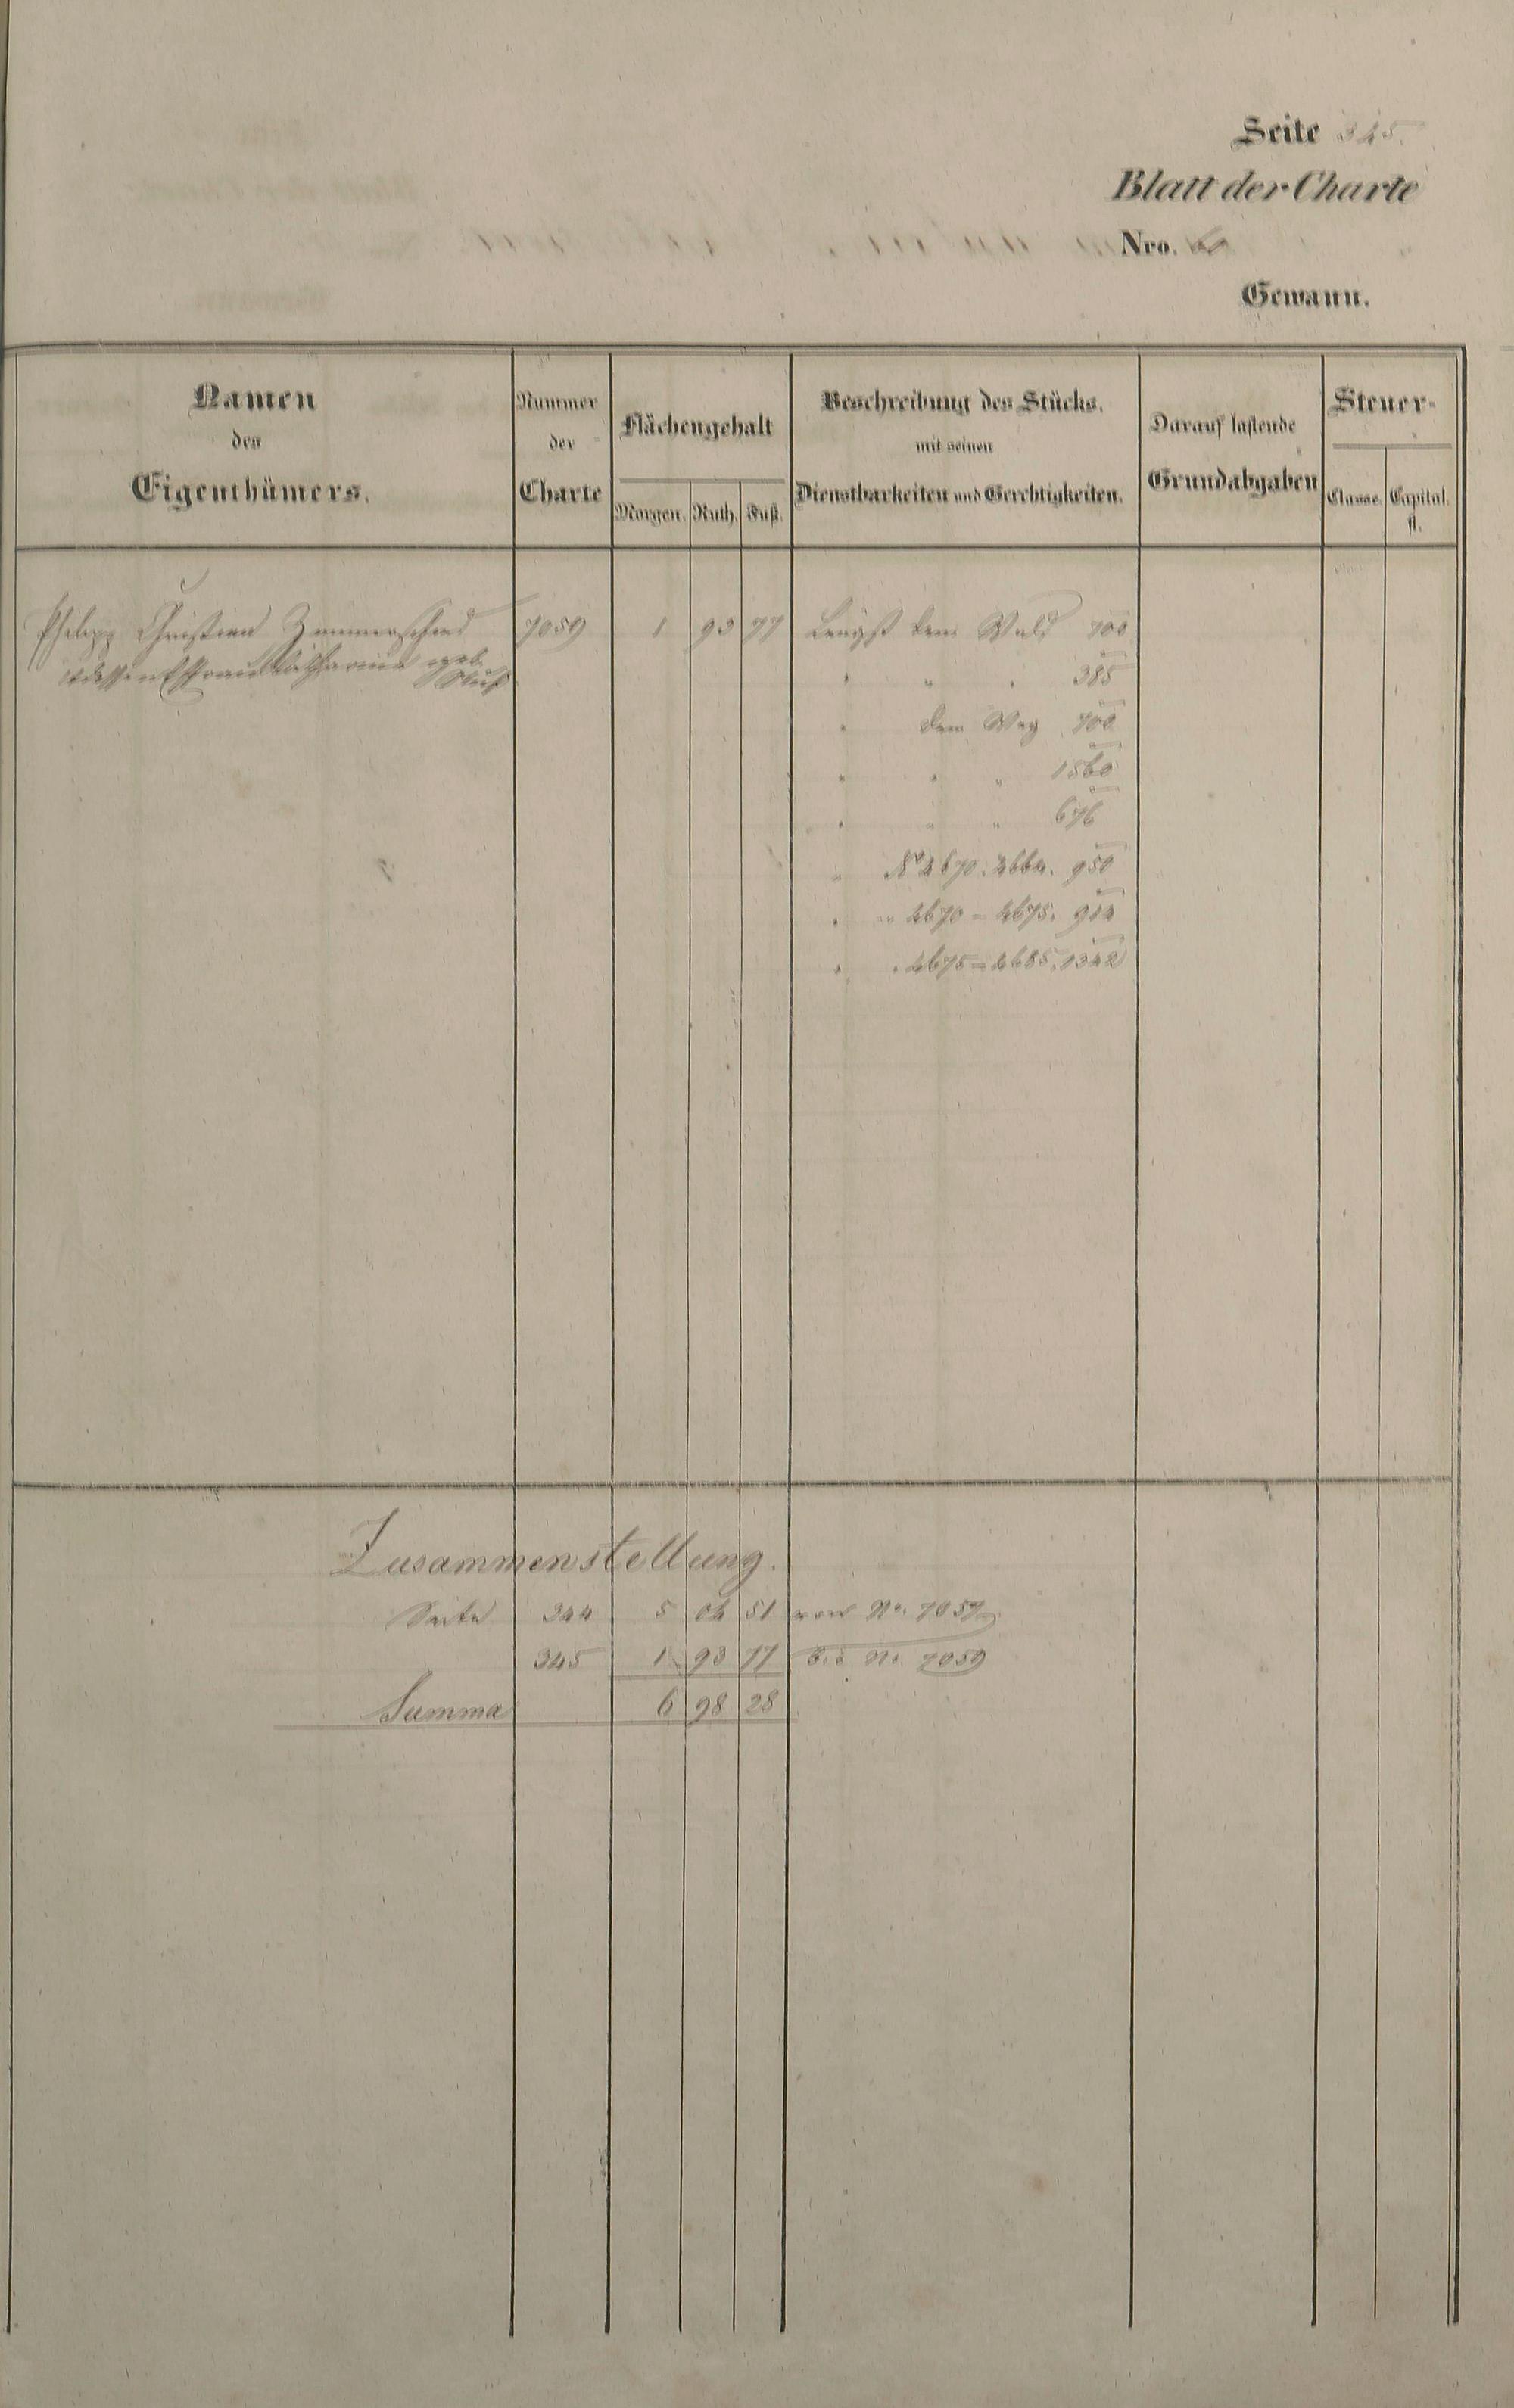 Seite 345.
Blatt der Charte
Nro.
Gewann.
Namen
des
Eigenthümers.
Nummer
der
Charte
Flächengehalt
Morgen. Ruth. Fuß.
Beschreibung des Stücks,
mit seinen
Dienstbarkeiten und Gerechtigkeiten.
Darauf lastende
Grundabgaben
Steuer-
Classe. Capital.
fl.
Philipp Christian Zimmerschied 7059 1 93 77 Längst dem Wald 700
u dessen Ehefrau Catharina geb.
" " " 385
" dem Weg 700
" " " 1560
" " " 676
" No 4670. 4664. 950
" " 4670 = 4675. 914
" " 4675 = 4685. 1342
Zusammenstellung.
Seite 344 5 04 51 von No. 7057
345 1 93 77 bis No. 7059
Summa 6 98 28